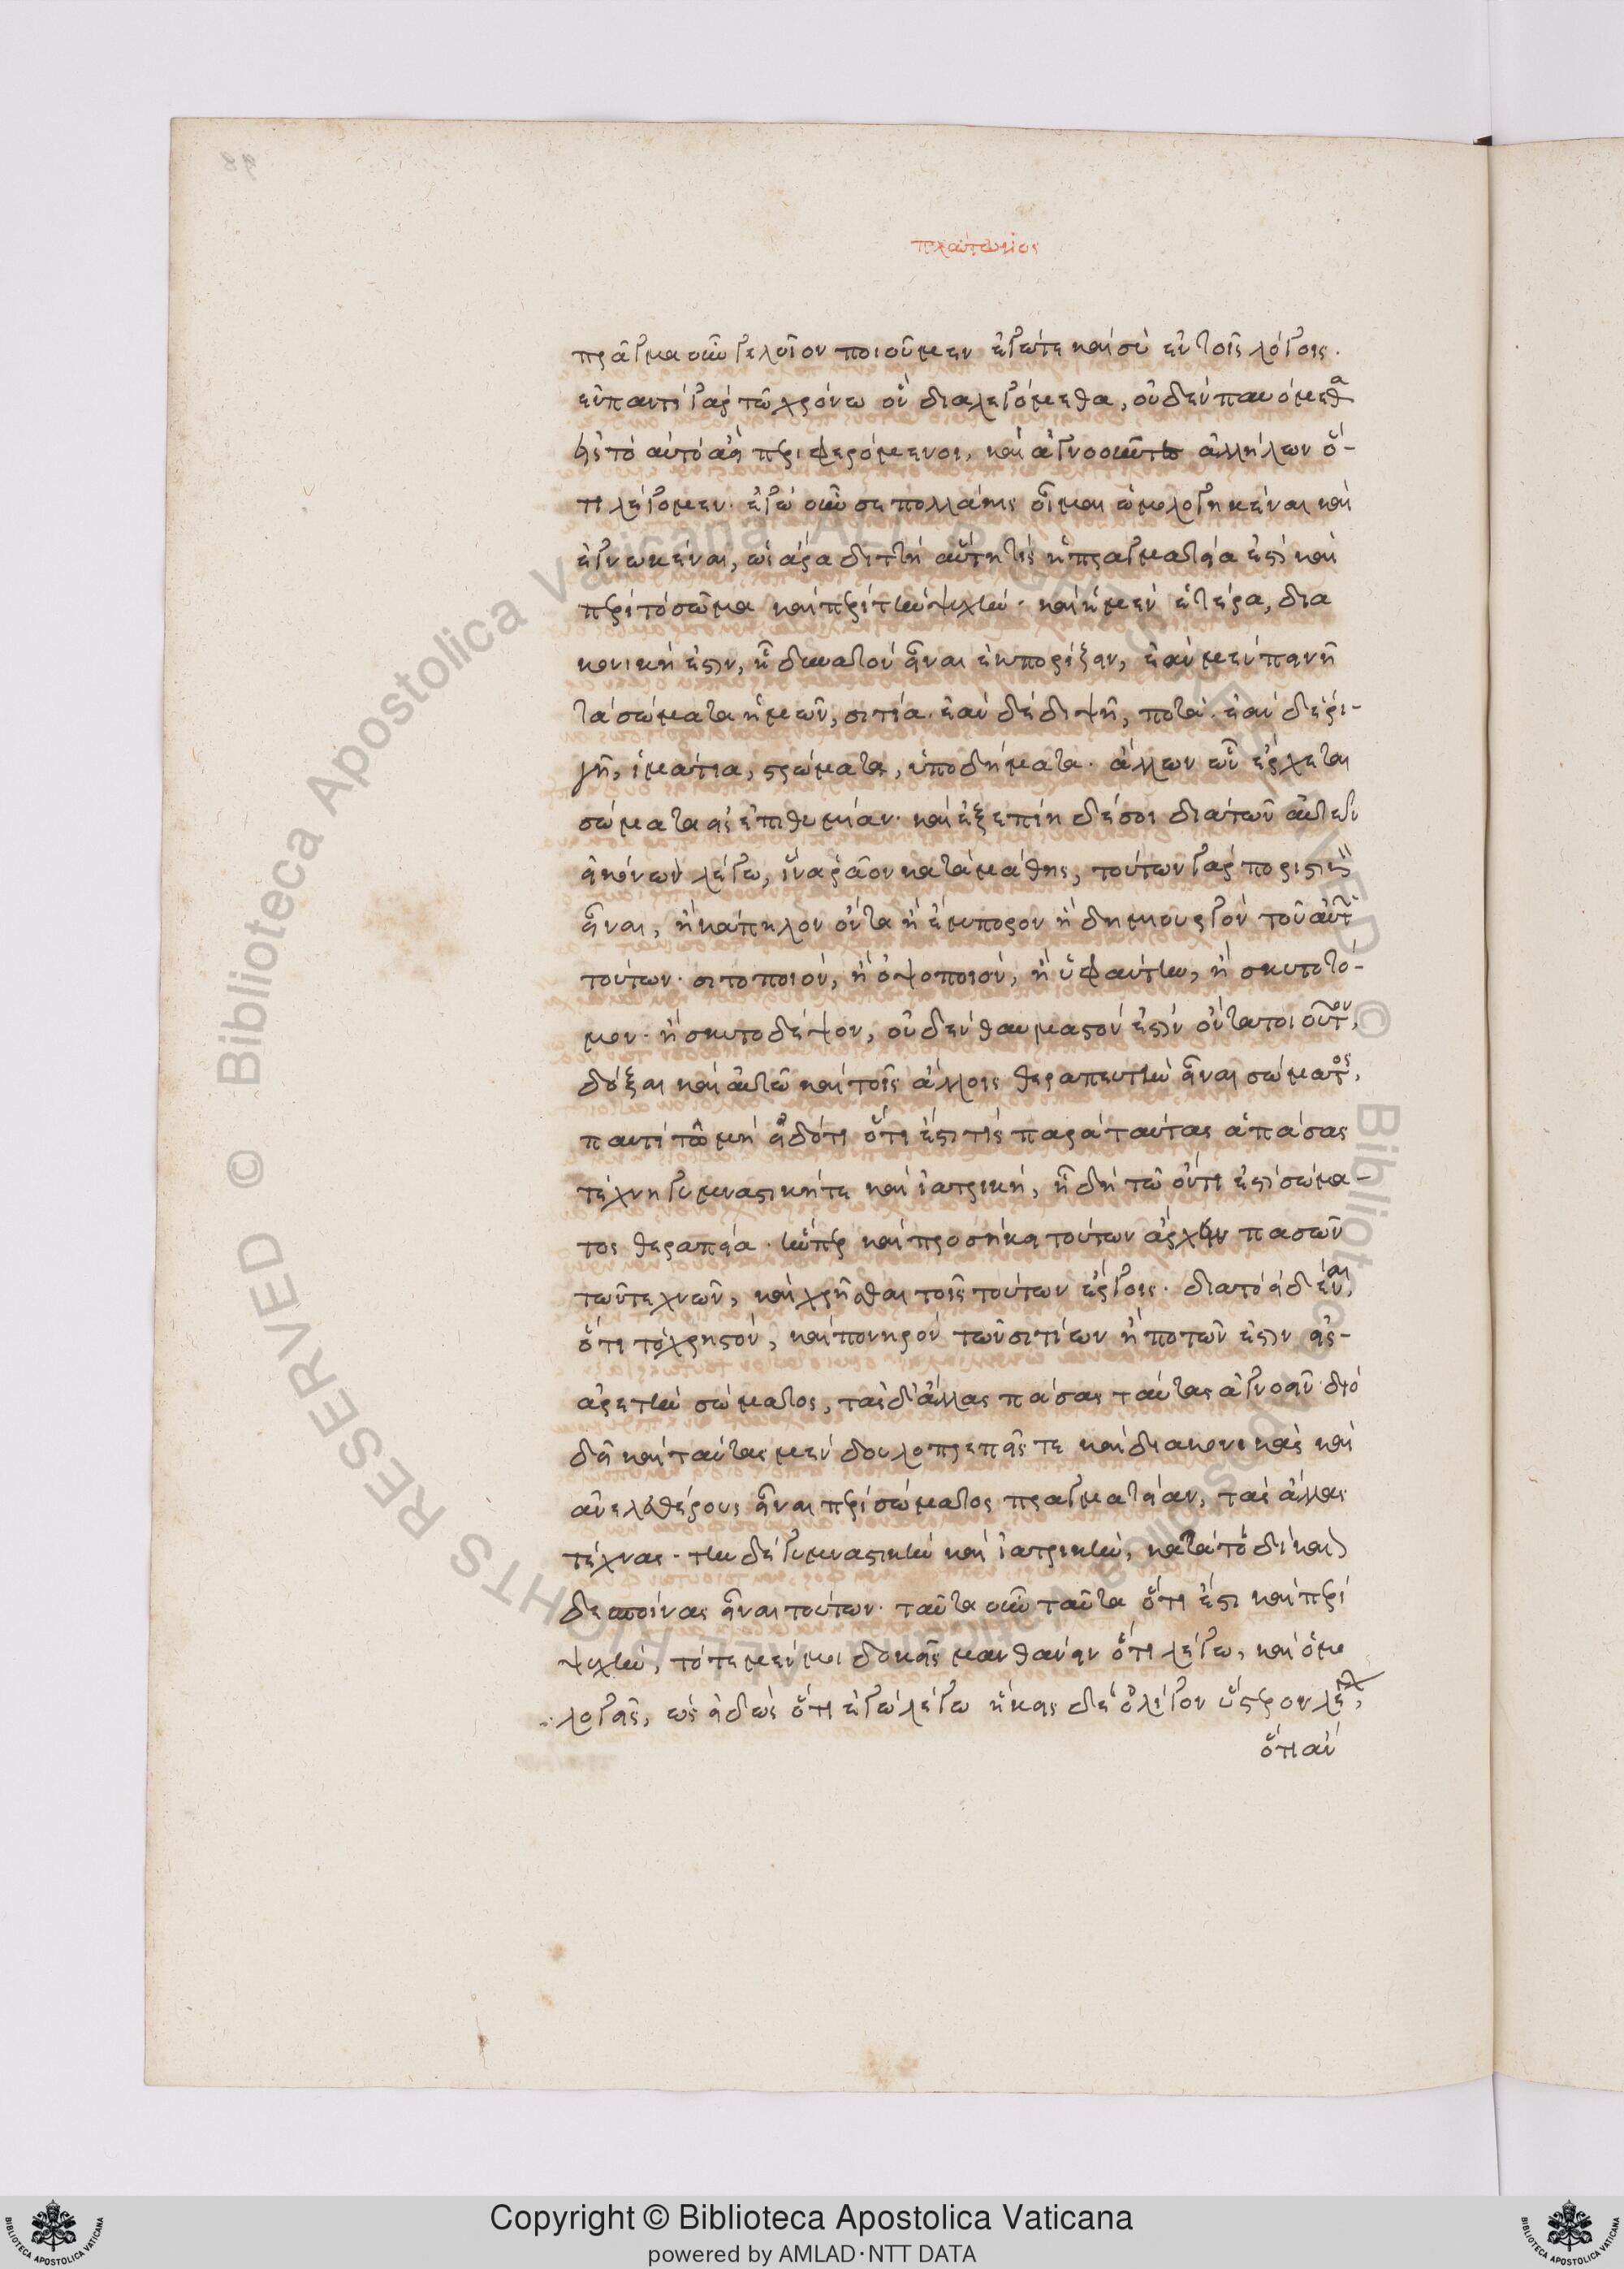 πλάτωνος
πρᾶγμα οὖν γελοῖον ποιοῦμεν ἐγώ τε καὶ σὺ ἐν τοῖς λόγοις.
ἐν παντὶ γὰρ τῷ χρόνῳ ὃν διαλεγόμεθα, οὐδὲν παυόμεθα
εἰς τὸ αὐτὸ ἀεὶ περιφερόμενοι, καὶ ἀγνοοῦντες ἀλλήλων ὅ-
τι λέγομεν. ἐγὼ οὖν σε πολλάκις οἶμαι ὡμολογηκέναι καὶ
ἐγνωκέναι, ὡς ἄρα διττὴ αὕτη τίς ἡ πραγματεία ἐστὶ καὶ
περὶ τὸ σῶμα καὶ περὶ τὴν ψυχήν. καὶ ἡ μὲν ἑτέρα, δια
κονική ἐστιν, ᾗ δυνατὸν εἶναι ἐκπορίζειν, ἐὰν μὲν πεινῇ
τὰ σώματα ἡμῶν, σιτία. ἐὰν δὲ διψῇ, ποτά. ἐὰν δὲ ῥι-
γῇ, ἱμάτια, στρώματα, ὑποδήματα. ἄλλων ὧν ἔρχεται
σώματα εἰς ἐπιθυμίαν. καὶ ἐξεπίτηδές σοι διὰ τῶν αὐτῶν
εἰκόνων λέγω, ἵνα ῥᾷον καταμάθῃς, τούτων γὰρ ποριστικὸν
εἶναι, ἢ κάπηλον ὄντα ἢ ἔμπορον ἢ δημιουργὸν τοῦ αὐτῶν
τούτων. σιτοποιόν, ἢ ὀψοποιόν, ἢ ὑφάντην, ἢ σκυτοτό-
μον. ἢ σκυτοδέψον, οὐδὲν θαυμαστόν ἐστιν ὄντα τοιοῦτον,
δόξαι καὶ αὑτῷ καὶ τοῖς ἄλλοις θεραπευτὴν εἶναι σώματος,
παντὶ τῷ μὴ εἰδότι ὅτι ἔστι τις παρὰ ταύτας ἁπάσας
τέχνη γυμναστική τε καὶ ἰατρική, ἣ δὴ τῷ ὄντι ἐστὶ σώμα-
τος θεραπεία. ἥνπερ καὶ προσήκει τούτων ἄρχειν πασῶν
τῶν τεχνῶν, καὶ χρῆσθαι τοῖς τούτων ἔργοις. διὰ τὸ εἰδέναι,
ὅτι τὸ χρηστόν, καὶ πονηρὸν τῶν σιτίων ἢ ποτῶν ἐστιν εἰς-
ἀρετὴν σώματος, τὰς δ' ἄλλας πάσας ταύτας ἀγνοεῖν. διὸ
δὴ καὶ ταύτας μὲν δουλοπρεπεῖς τε καὶ διακονικὰς καὶ
ἀνελευθέρους εἶναι περὶ σώματος πραγματείαν, τὰς ἄλλας
τέχνας. τὴν δὲ γυμναστικὴν καὶ ἰατρικήν, κατὰ τὸ δίκαιον
δεσποίνας εἶναι τούτων. ταῦτα οὖν ταῦτα ὅτι ἔστι καὶ περὶ
ψυχήν, τότε μέν μοι δοκεῖς μανθάνειν ὅτι λέγω, καὶ ὁμο
λογεῖς, ὡς εἰδὼς ὅτι ἐγὼ λέγω ἧκες δὲ ὀλίγον ὕστερον λέγων,
ὅτι ἂν